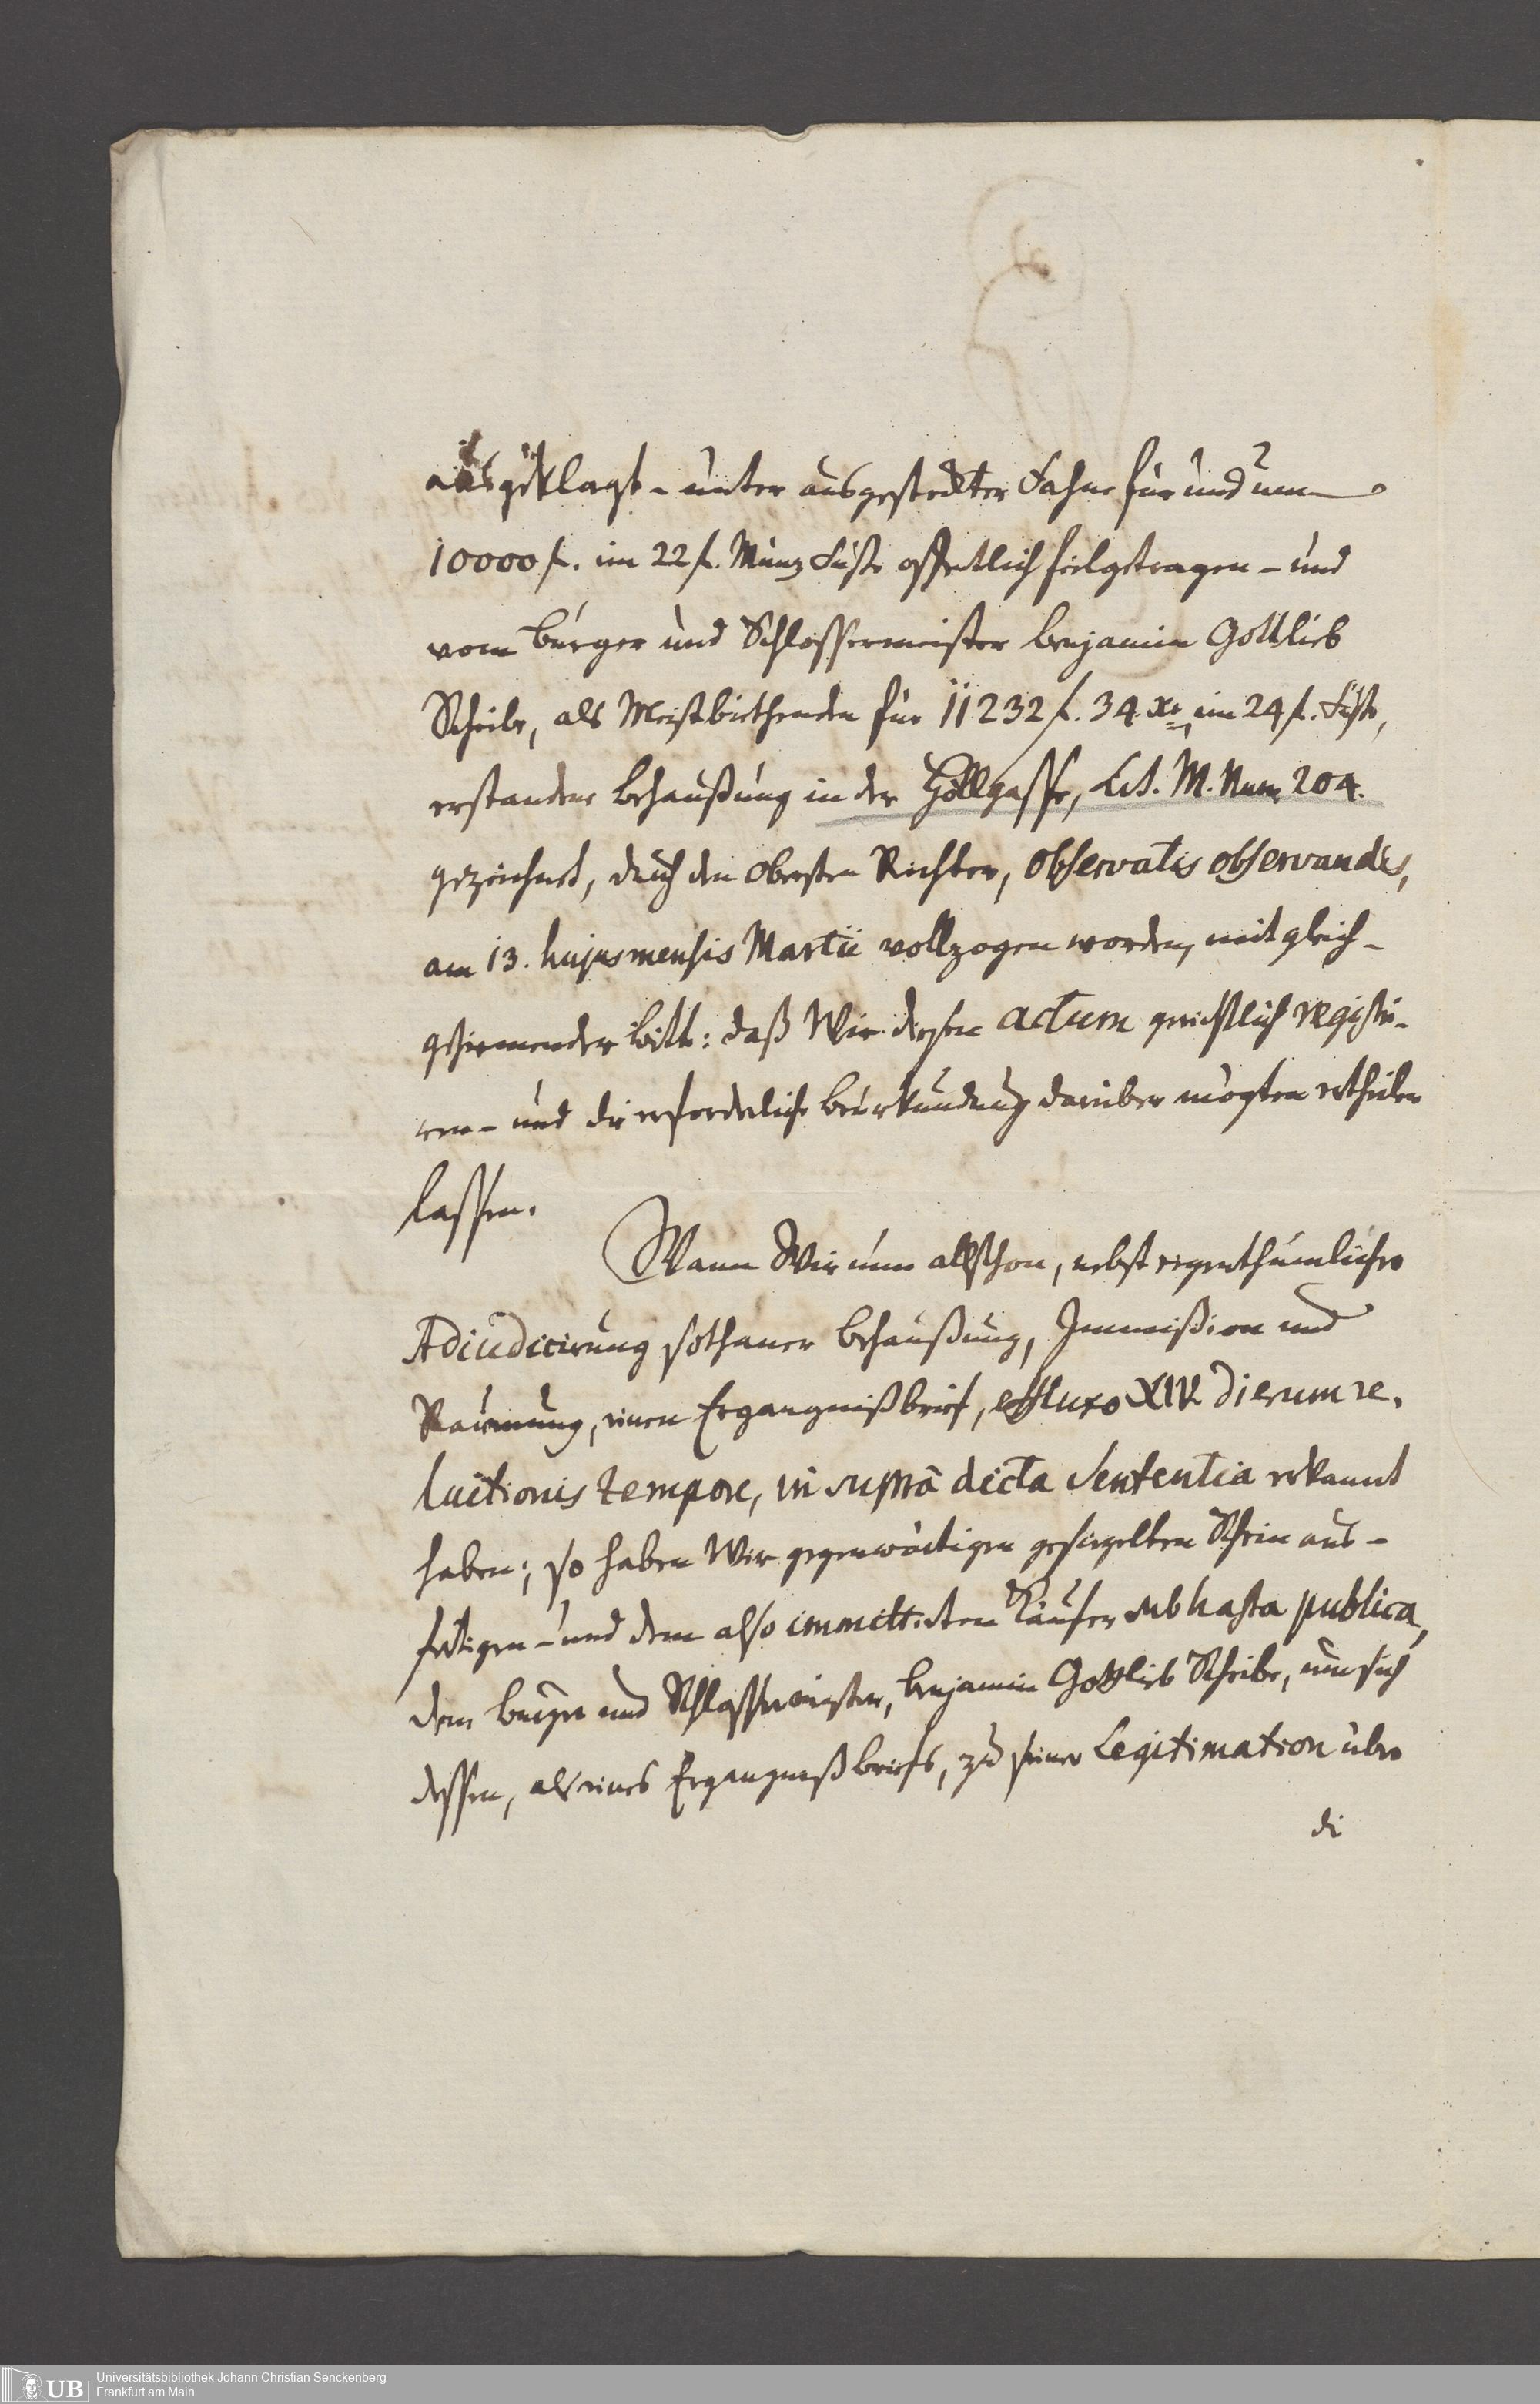 ausgeklagt- unter ausgesteckter Fahne für und um
10000 f. im 22 f. Münz Fuße offentlich feilgetragen- und
vom Burger und Schlossermeister Benjamin Gottlieb
Scheibe, als Meistbiethenden für 11232 f. 34 xr, im 24 f. Fuße,
erstandene Behaußung in der Höllgasse, Lit. M. Num 204.
gezeichnet, durch den Obersten Richter, observatis observandis,
am 13. hujus mensis Martii vollzogen worden, mit gleich-
geziemender Bitte: daß Wir diesen actum gerichtlich registri-
ren- und die erforderliche Beurkundung darüber mögten ertheilen
lassen.
Wann Wir nun allschon, nebst eigenthümlicher
Adiudicirung sothaner Behaußung, Immißion und
Raumung, einen Ergangnißbrief, effluxo XIV dierum re-
luitionis tempore, in supra dicta Sententia erkannt
haben; so haben Wir gegenwärtigen gesiegelten Schein aus-
fertigen- und dem also immittirten Käufer sub hasta publica,
dem Burger und Schlossermeister, Benjamin Gottlieb Scheibe, um sich
dessen, als eines Ergangnißbriefs, zu seiner Legitimation über
di
UB
Universitätsbibliothek Johann Christian Senckenberg
Frankfurt am Main